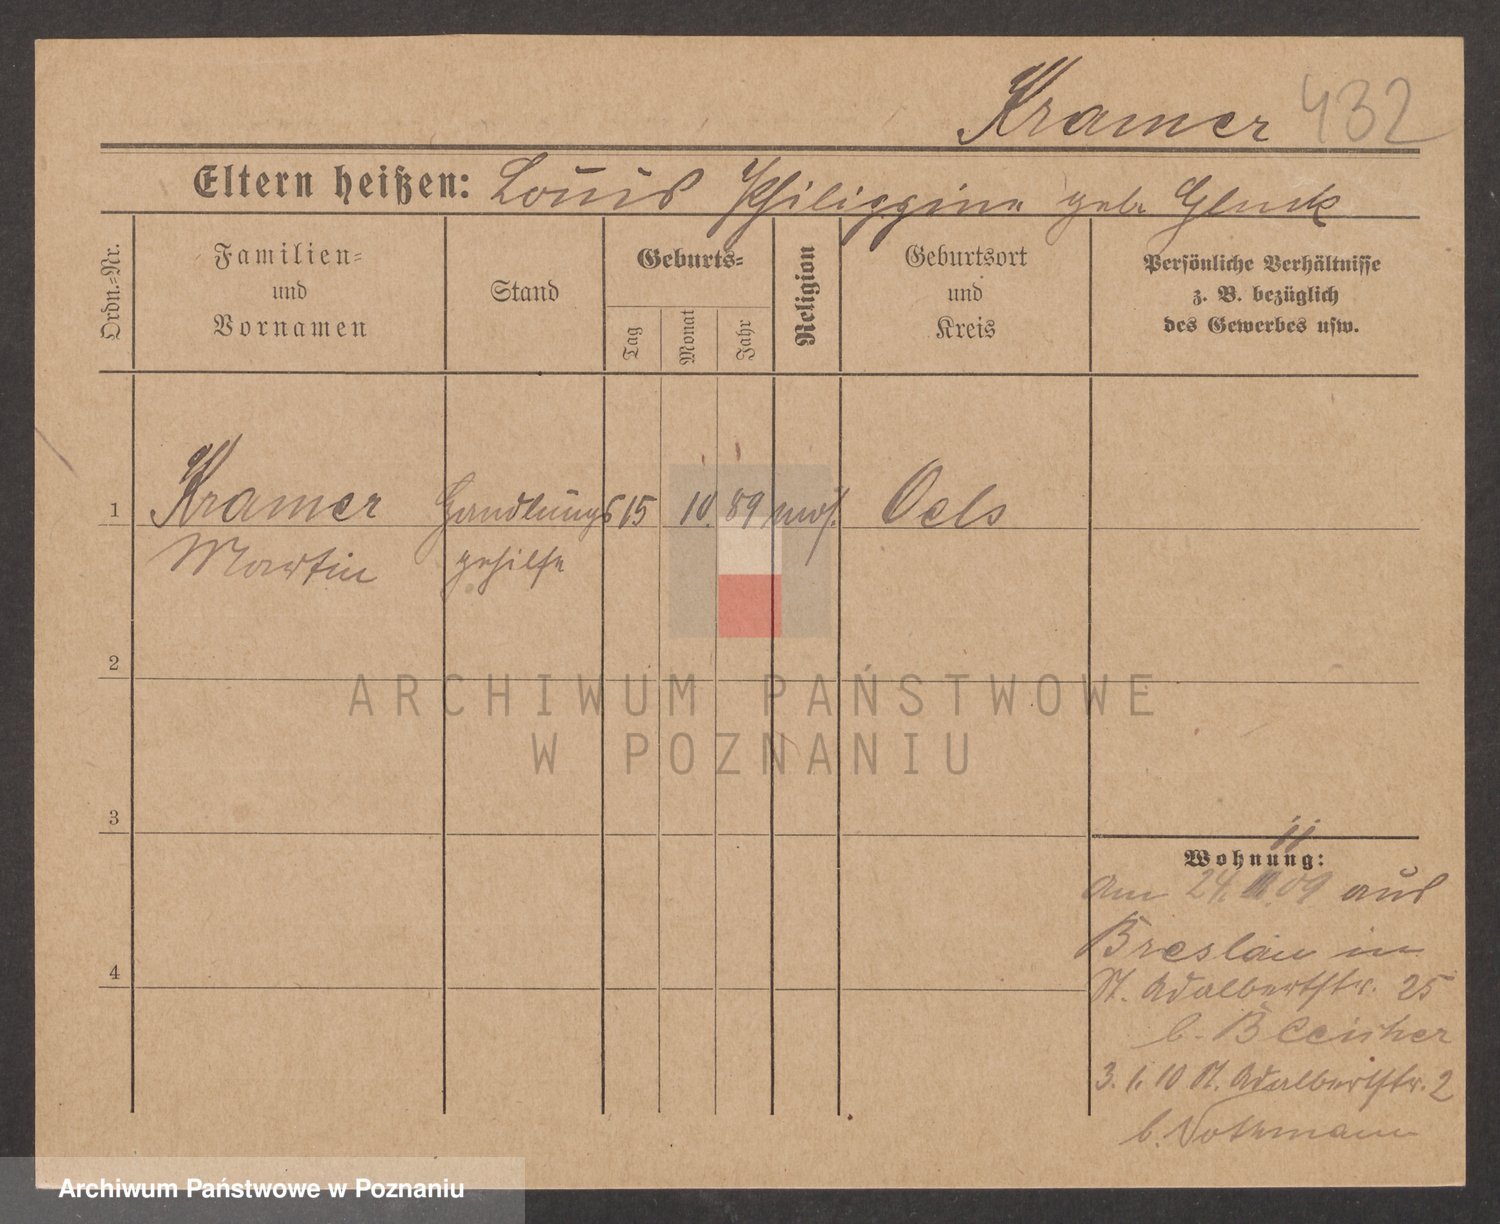 Kramer 432
Eltern heißen: Louis Philippine geb. Gluck
Ordn.-Nr.
Familien-
und
Vornamen
Stand
Geburts-
Tag
Monat
Jahr
Religion
Geburtsort
und
Kreis
Persönliche Verhältnisse
z. B. bezüglich
des Gewerbes usw.
1 Kramer Handlungs 15 10. 89 mos. Oels
Martin gehilfe
2
ARCHIWUM PAŃSTWOWE
W POZNANIU
3
Wohnung:
am 24. 09 aus
Breslau in
4
St. Adalbertstr. 25
b.
3. 1. 10 St. Adalbertstr. 2
b. Nothmann
Archiwum Państwowe w Poznaniu